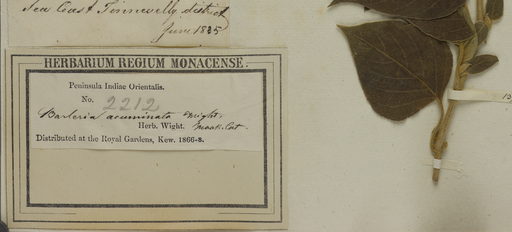 Sea Coast Tinnevelly district
June 1835
HERBARIUM REGIUM MONACENSE.
Peninsula Indiae Orientalis.
No. 2212
Barleria acuminata Wight.
Herb. Wight.
Distributed at the Royal Gardens, Kew. 1866-8.